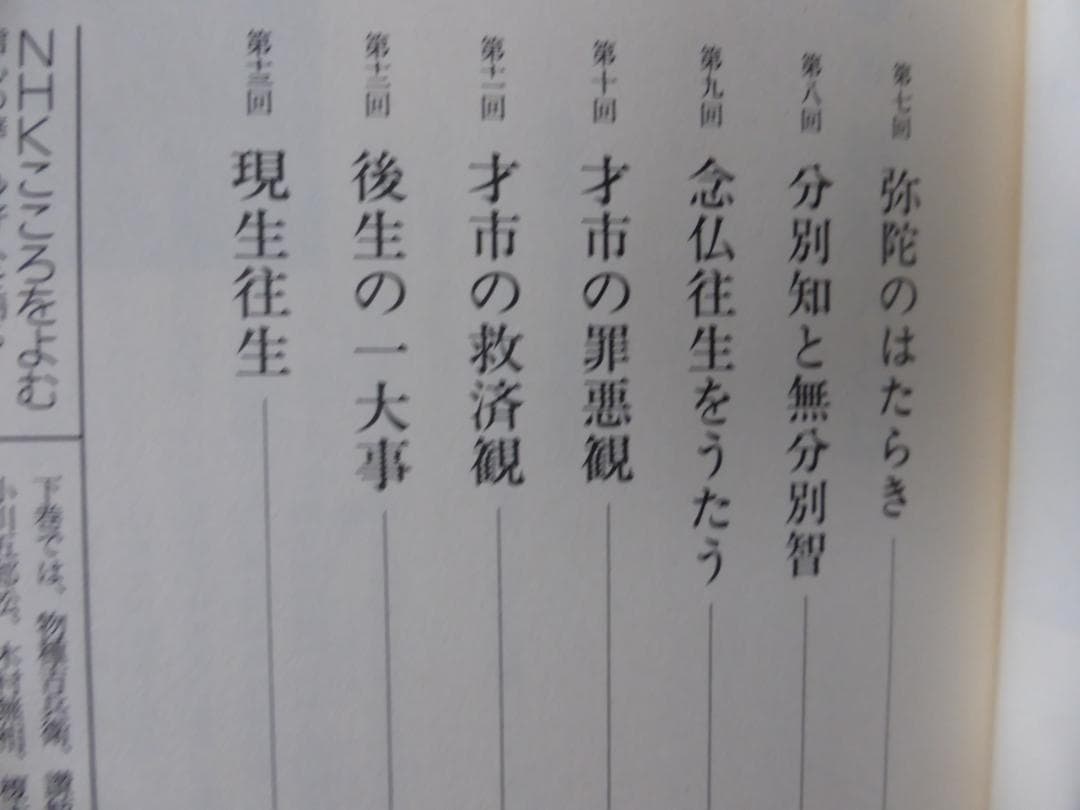 第七回 弥陀のはたらき
第八回 分別知と無分別智
第九回 念仏往生をうたう
第十回 才市の罪悪観
第十一回 才市の救済観
第十二回 後生の一大事
第十三回 現生往生
NHKこころをよむ
下巻では、物種吉兵衛、